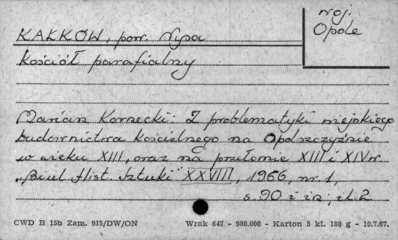 KAŁKÓW, pow. Nysa
woj. Opole
Kościół parafialny
Marian Kornecki: Z problematyki miejskiego
budownictwa kościelnego na Opolszczyźnie
w wieku XIII, oraz na przełomie XIII i XIV w.
"Biul. Hist. Sztuki" XXVIII, 1966, nr 1,
s. 90 i in; il. 2
CWD B 15b Zam. 915/DW/ON Wrak 647 - 980.000 - Karton 3 kl. 180 g - 10.7.67.